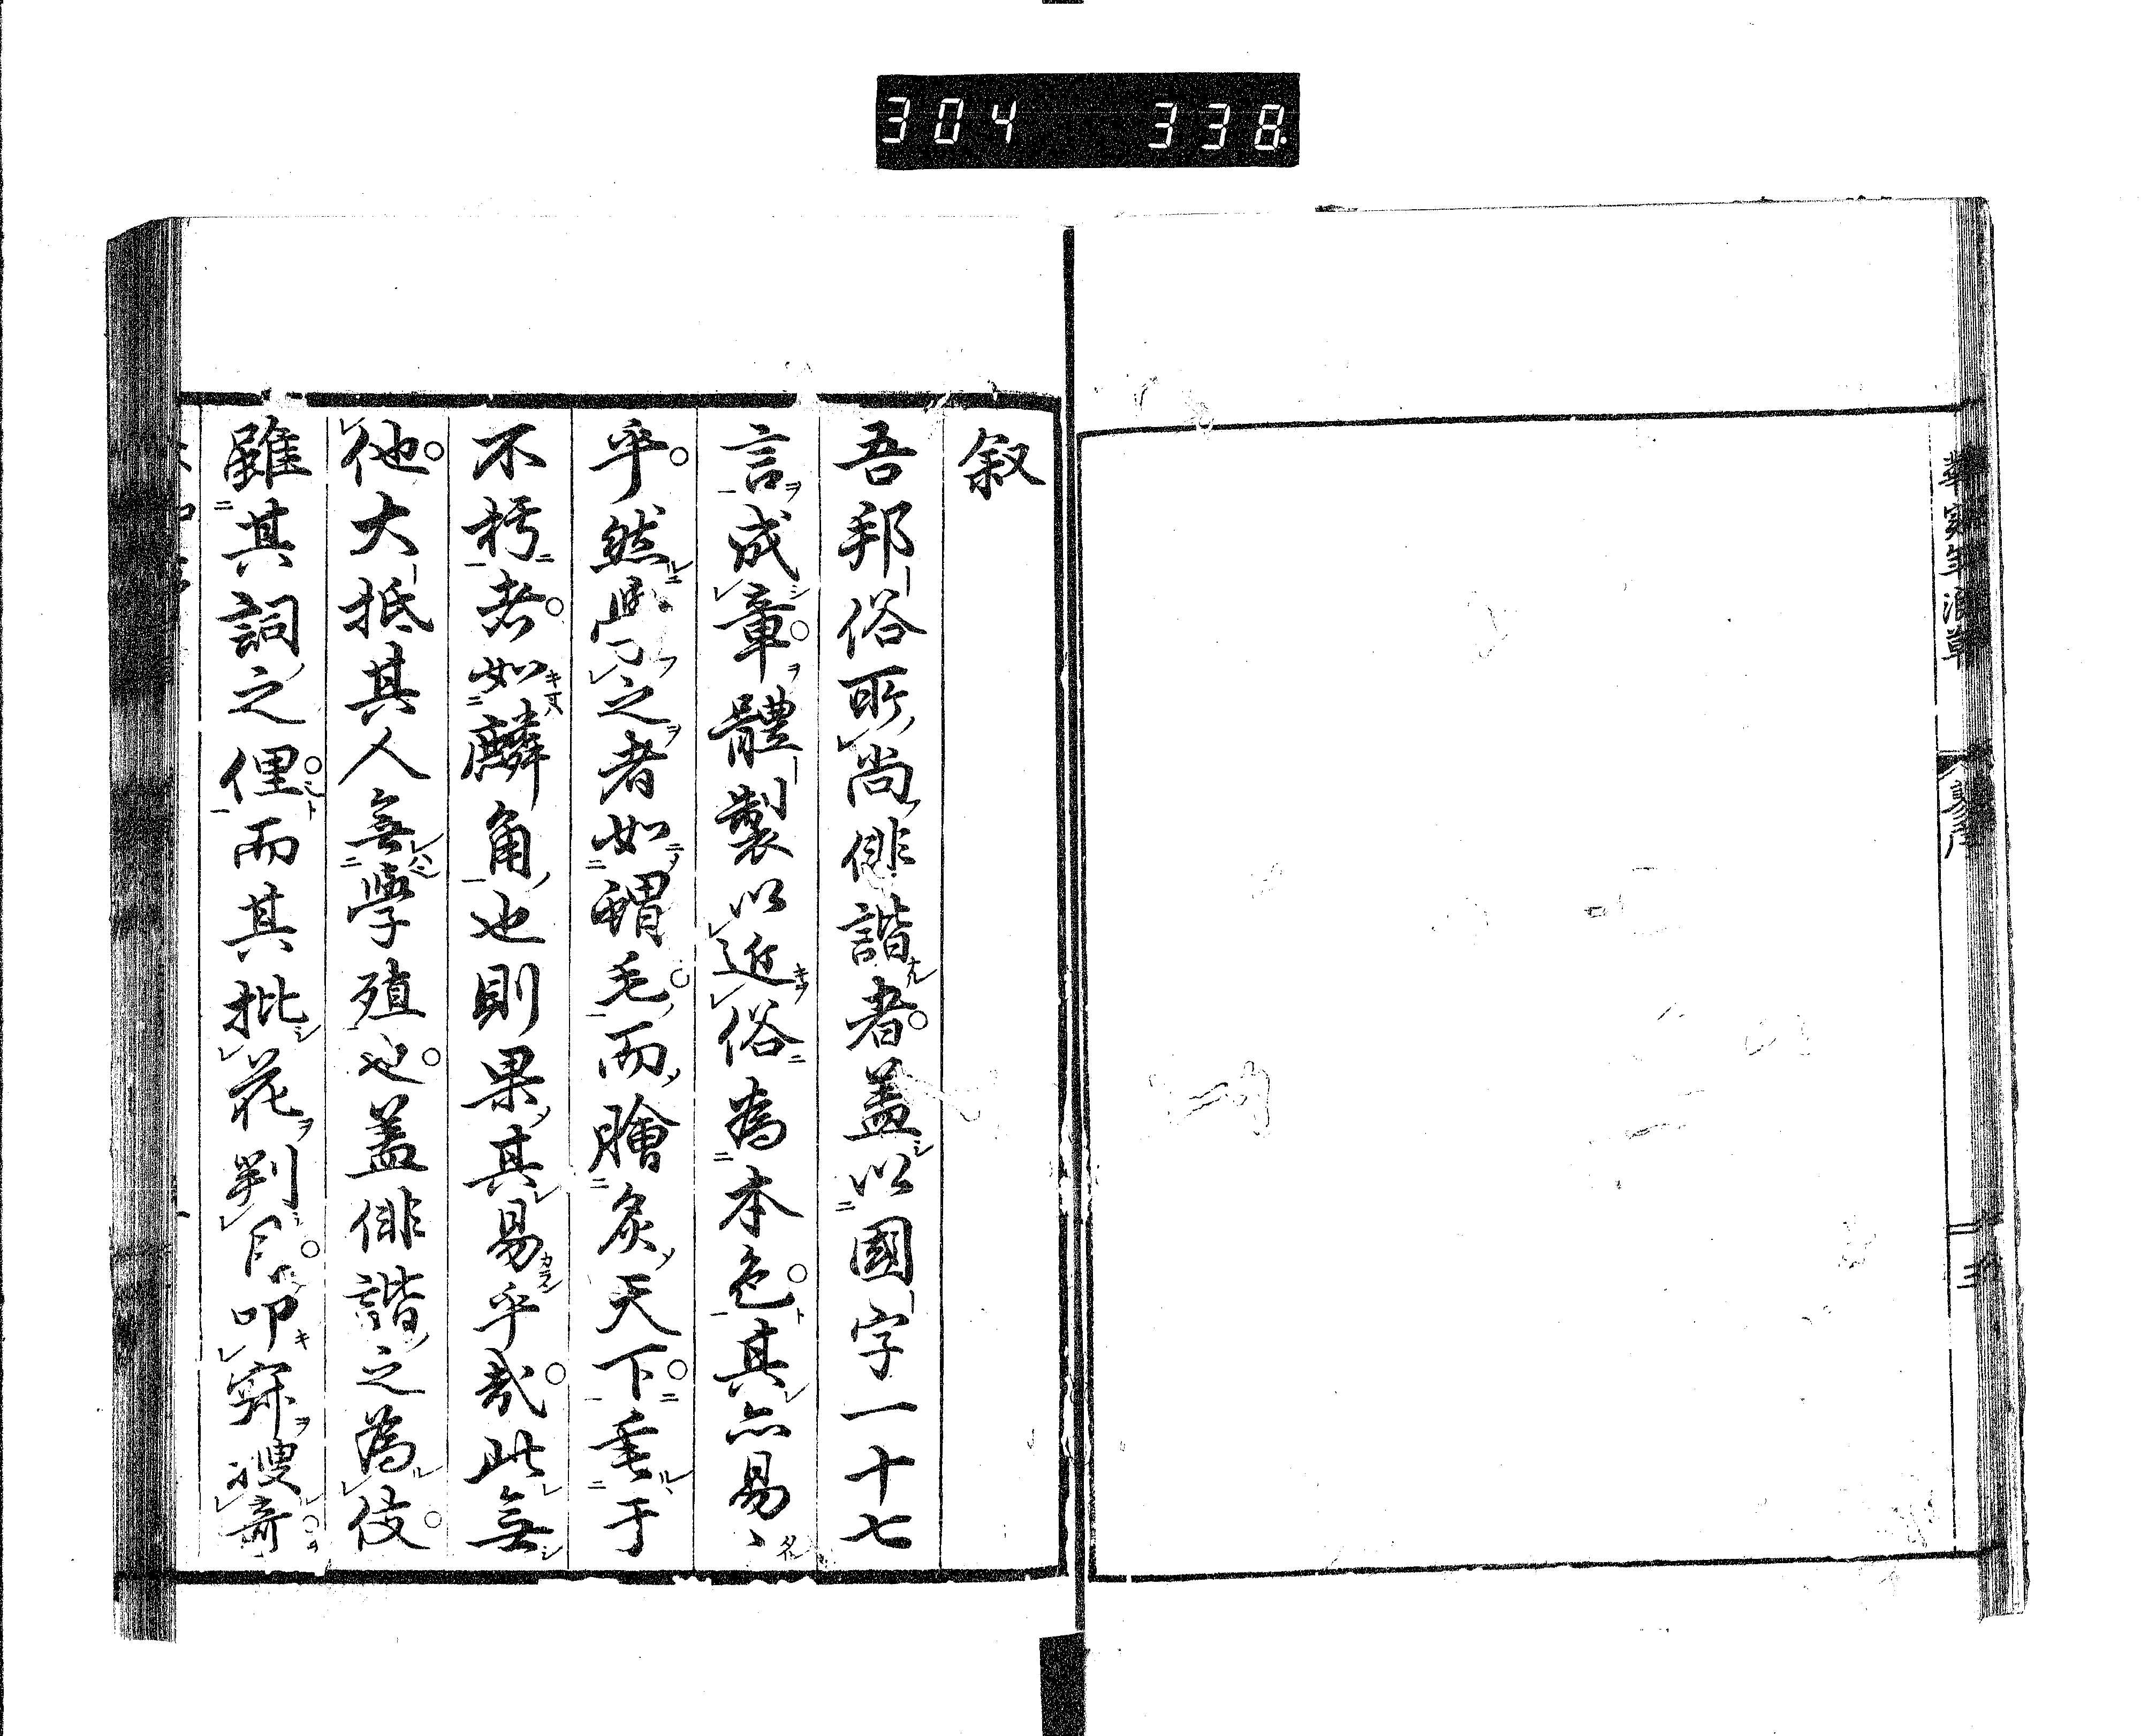 304 338
叙
吾邦俗所尚俳諧者蓋以國字一十七
言成章體製以近俗為本色其亦易〻
乎然學之者如蝟毛而膾炙天下垂于
不朽者如麟角也則果其易乎哉此無
他大抵其人無學殖也蓋俳諧之為伎
雖其詞之俚而其批花判月叩寂搜奇